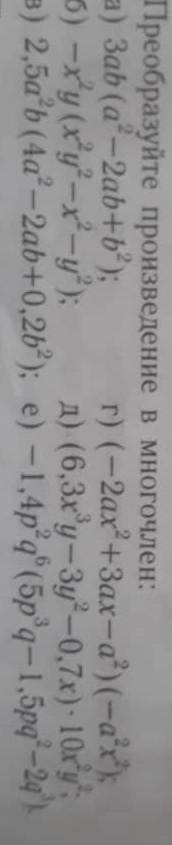 Преобразуйте произведение в многочлен:
а) 3ab(a²−2ab+b²); г) (−2ax²+3ax−a²)(−a²x²);
б) −x²y(x²y²−x²−y²); д) (6,3x³y−3y²−0,7x)·10x²y²;
в) 2,5a²b(4a²−2ab+0,2b²); е) −1,4p²q⁶(5p³q−1,5pq²−2q³).